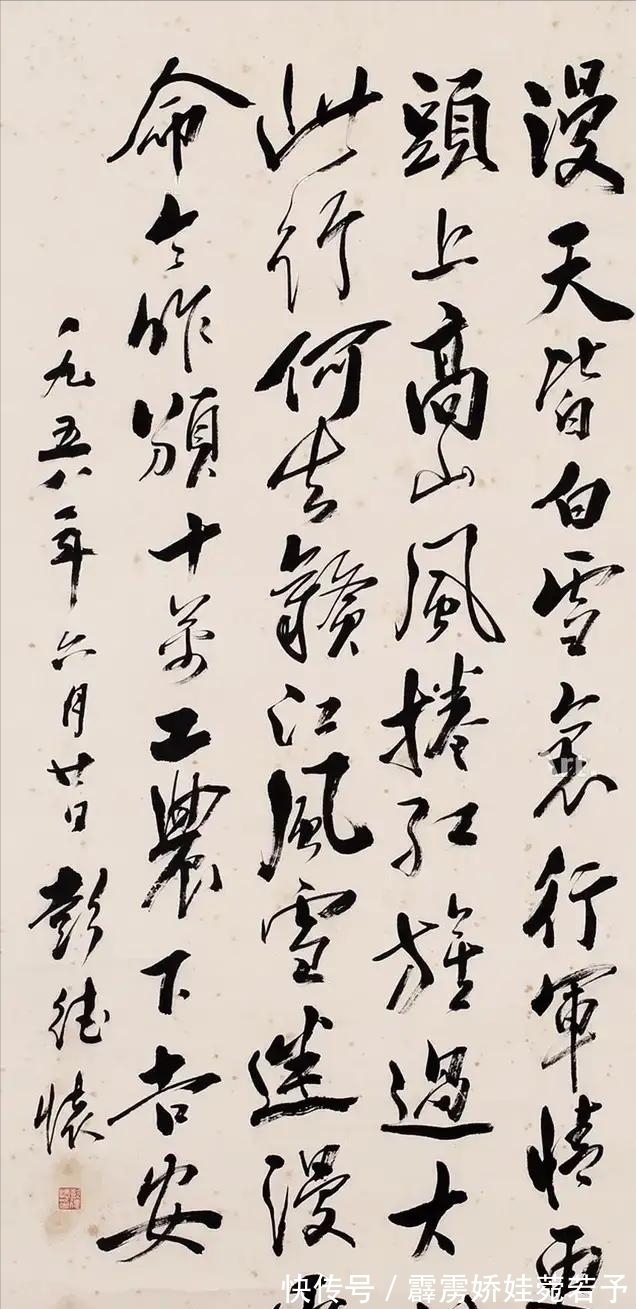 漫天皆白雪裏行軍情更
頭上高山風捲紅旗過大
此行何去贛江風雪迷漫
命令昨頒十萬工農下吉安
一九五八年六月廿日 彭德懷
快传号 / 霹雳娇娃菀若予